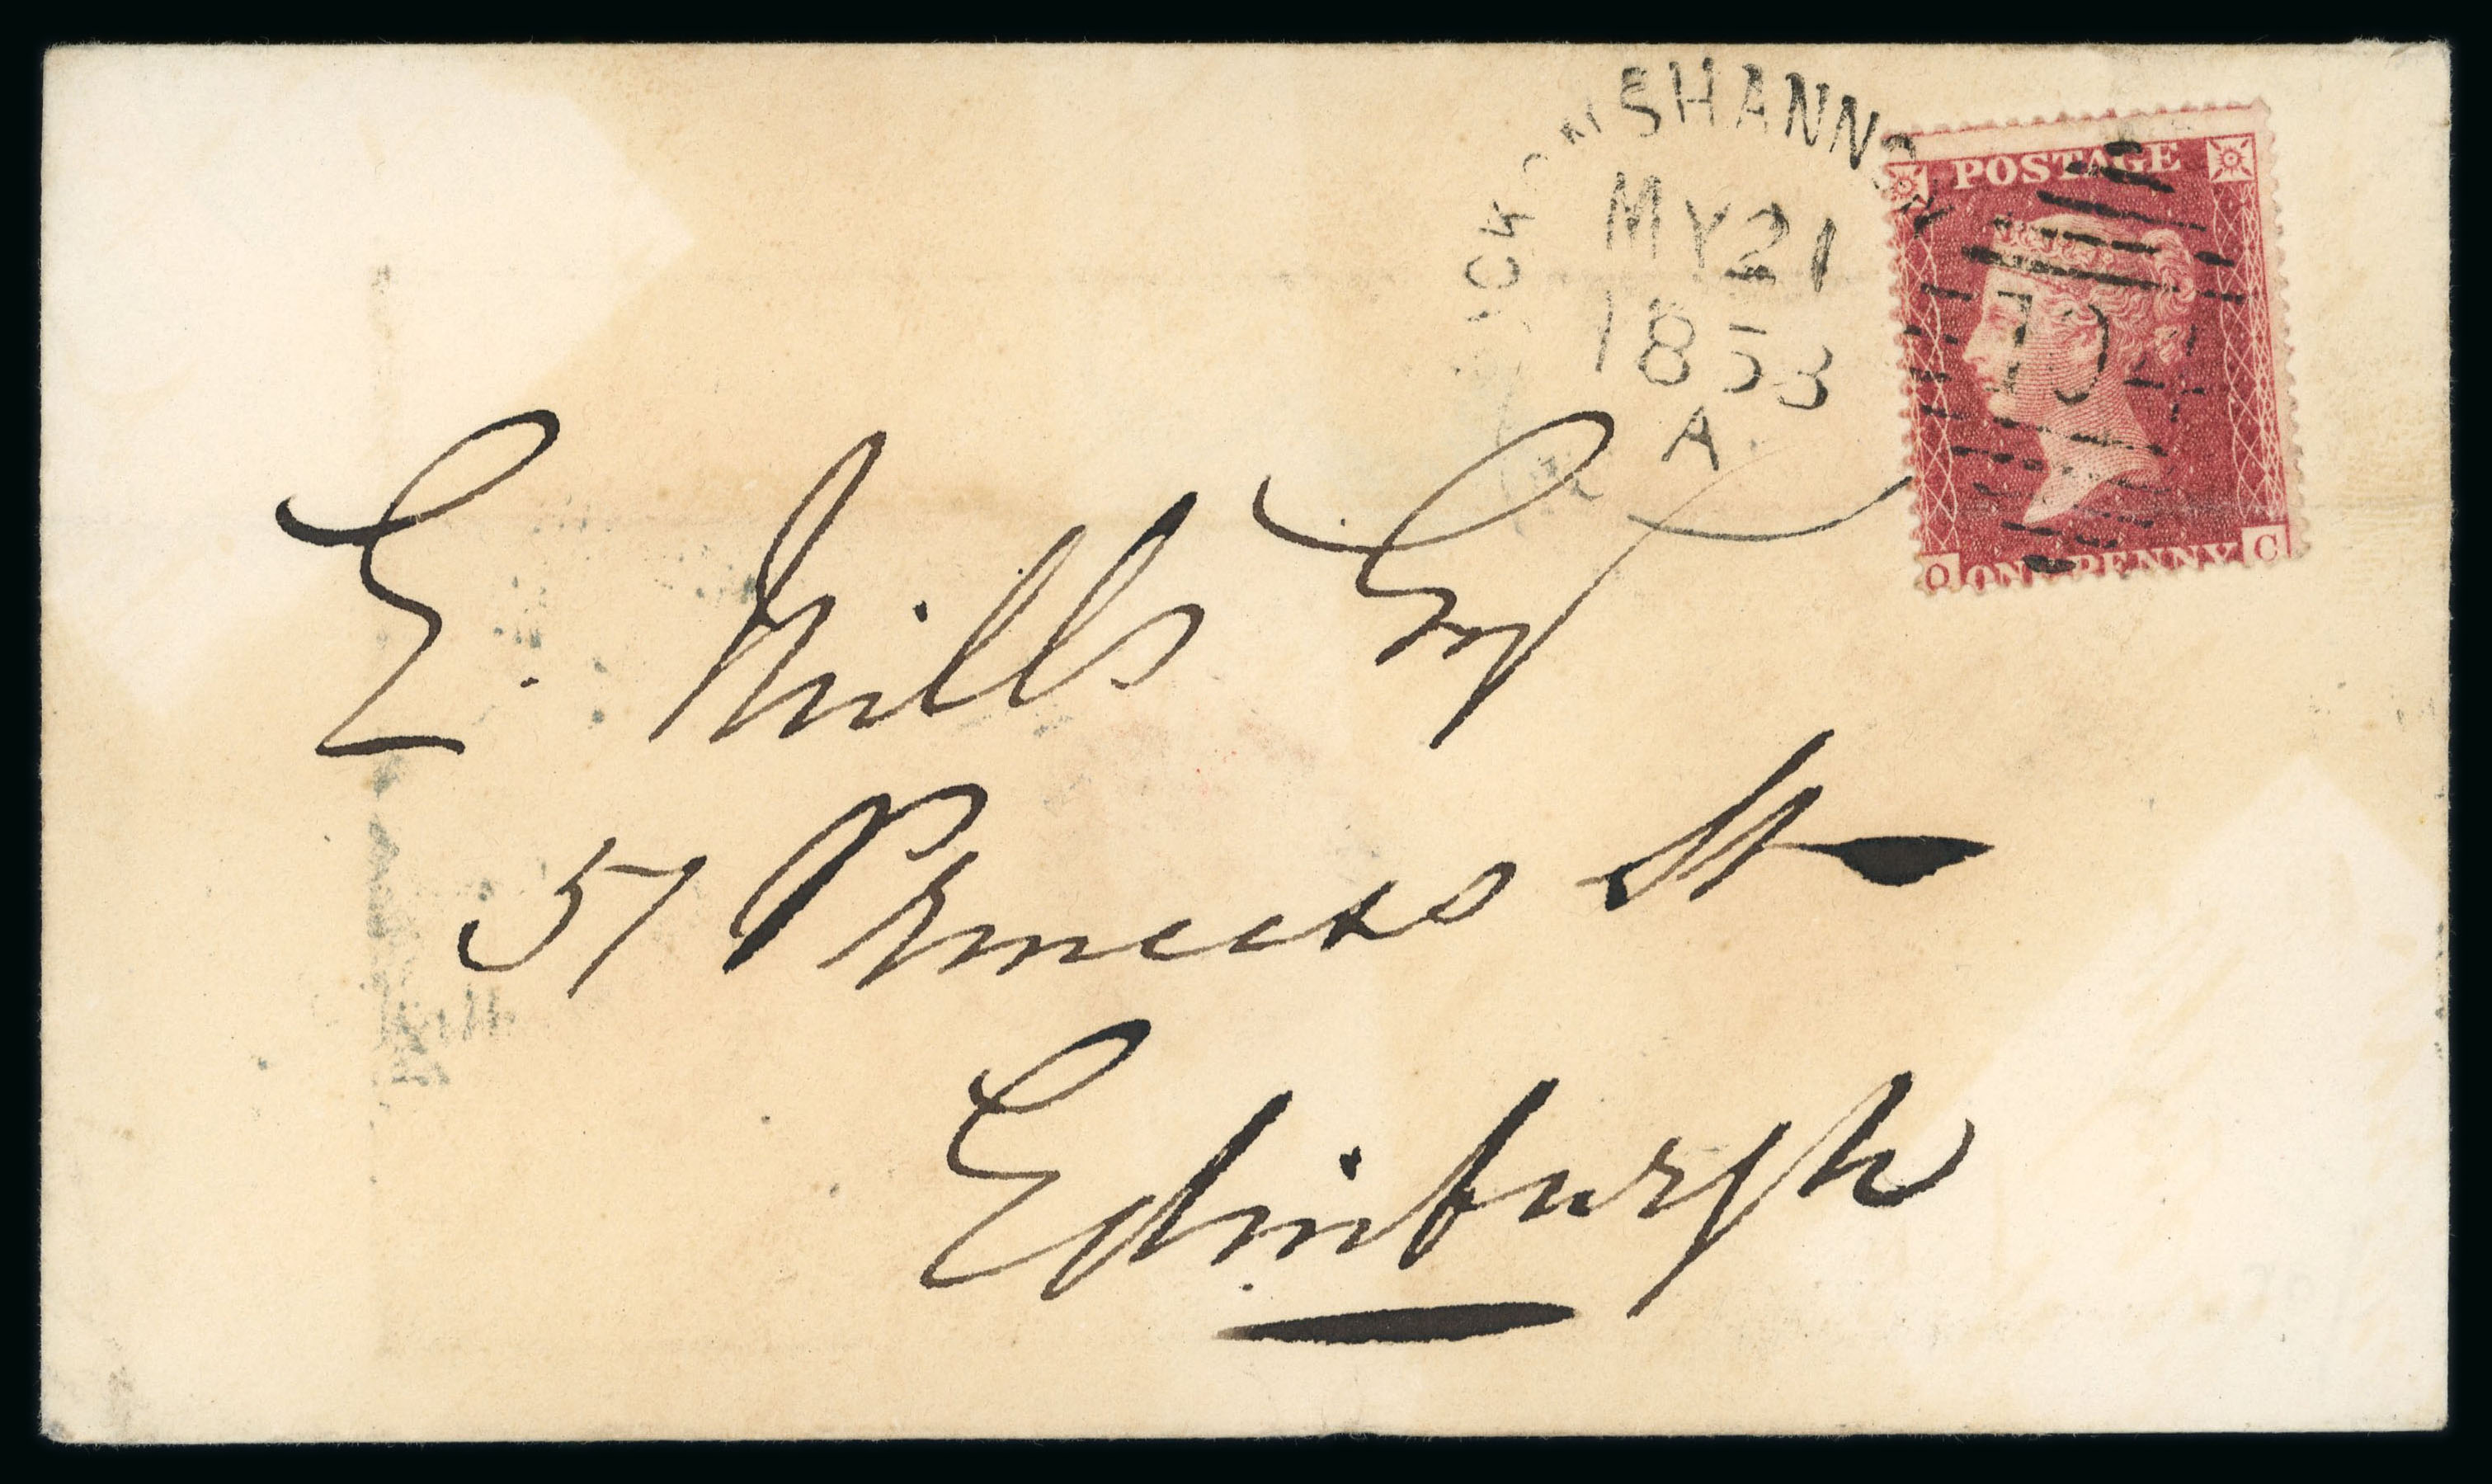 CK ON SHANNON
MY 21
1853
A
POSTAGE
104
O ONE PENNY C
E. Mills Esq
57 Princess St
Edinburgh